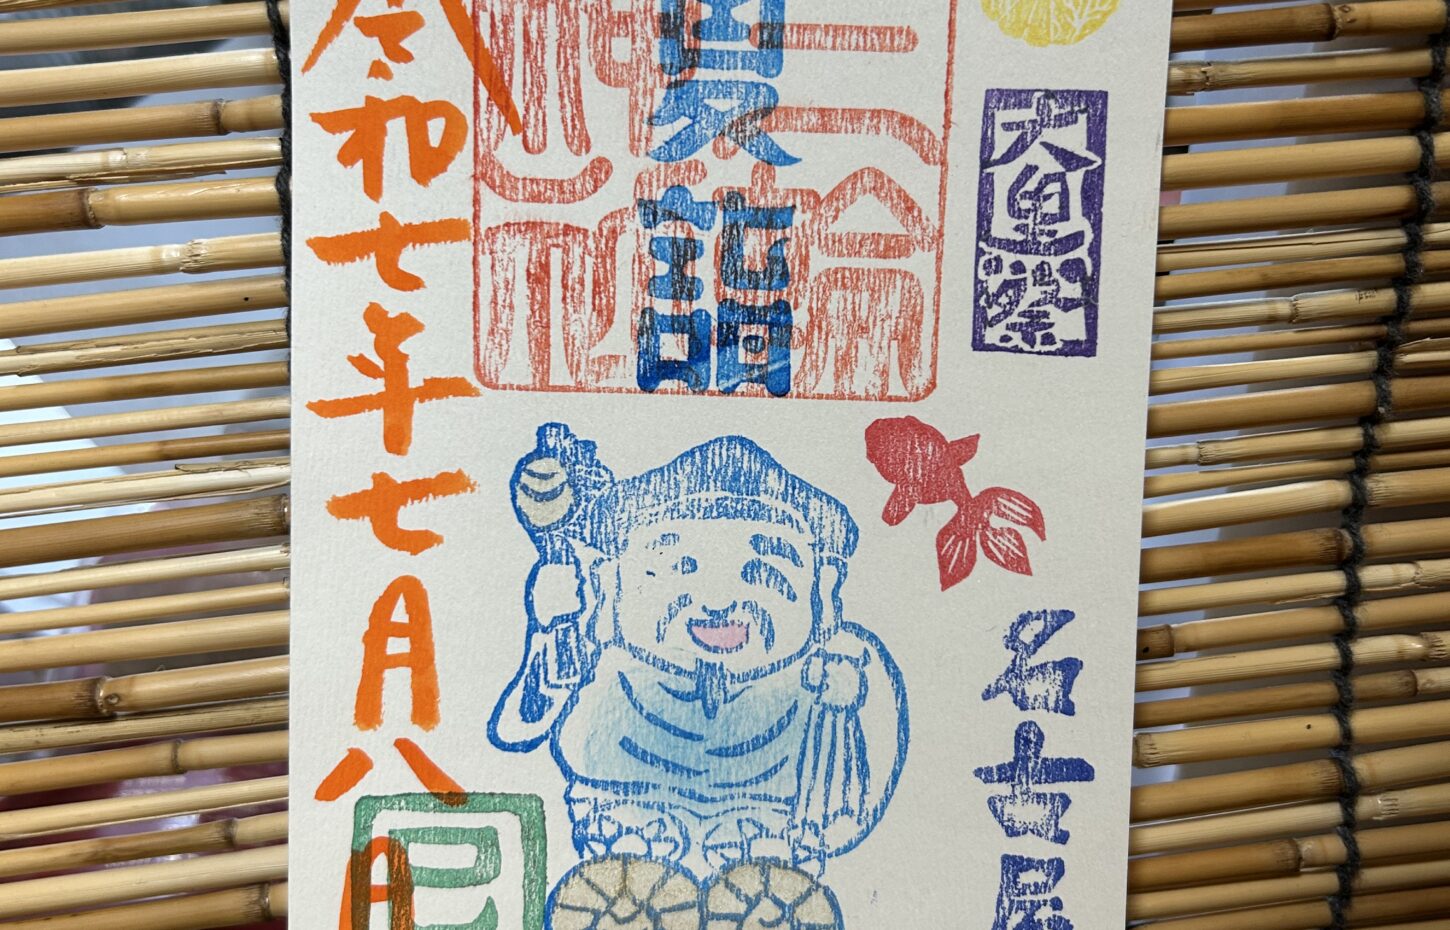 大黒祭
名古屋
夏詣
令和七年七月八日
巳